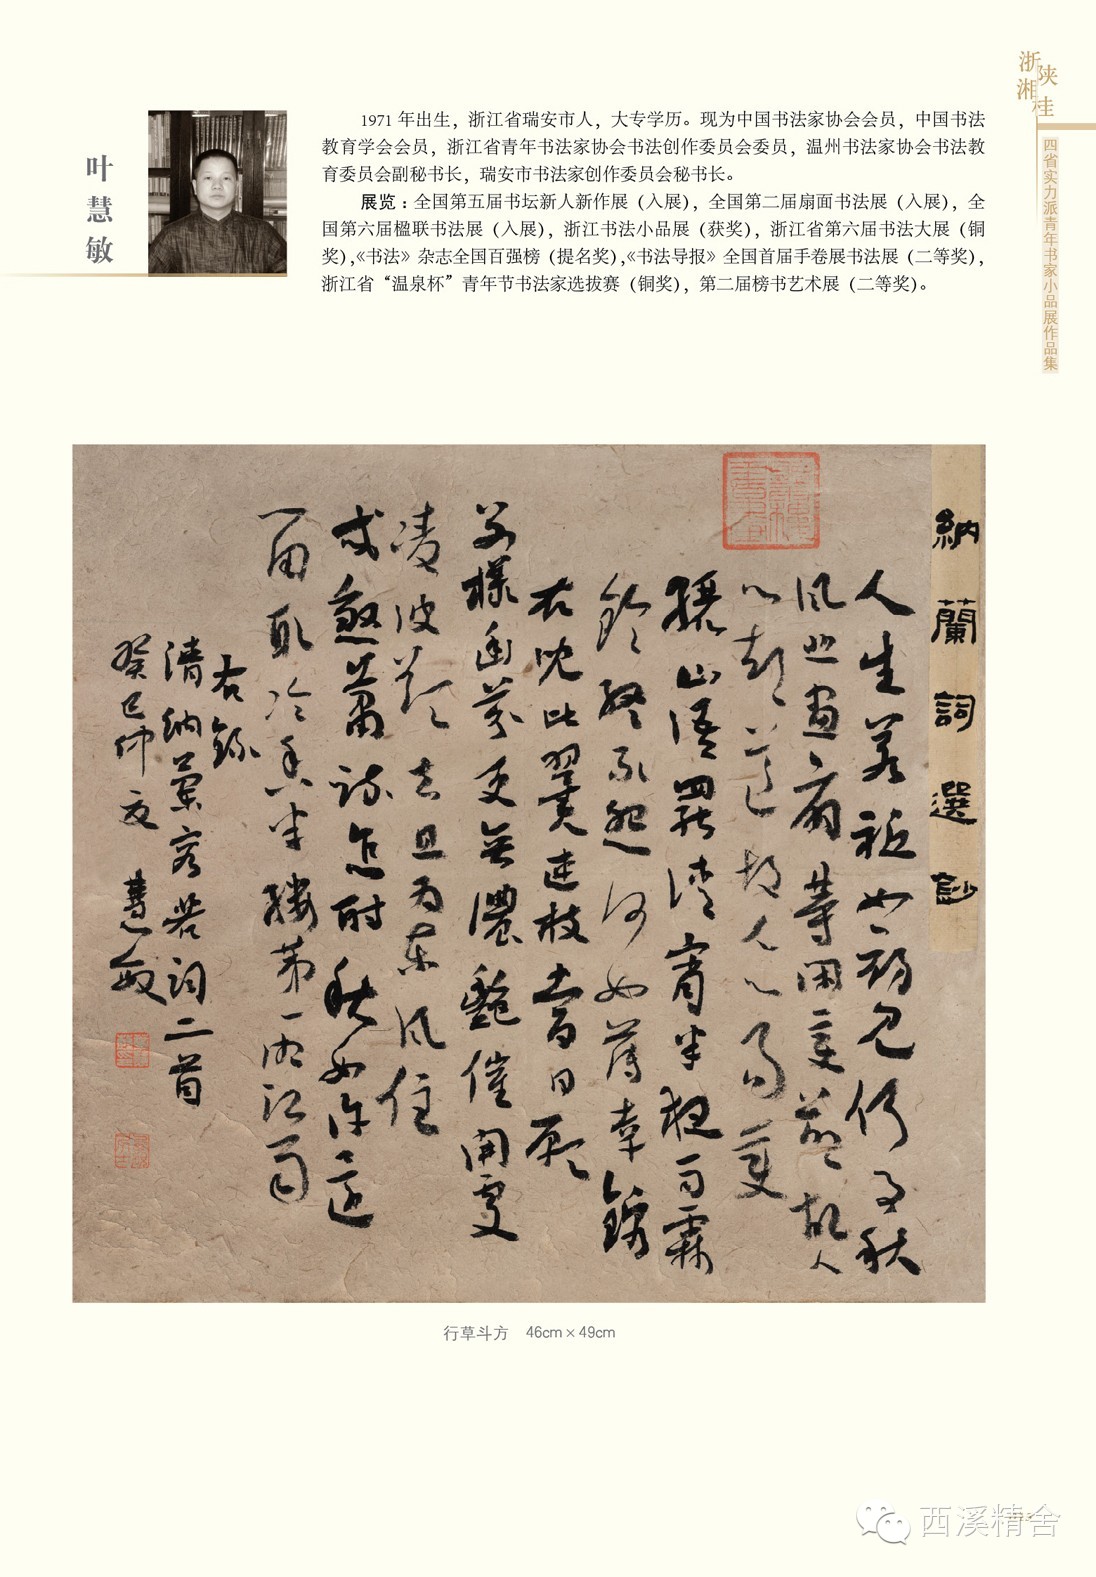 浙陕
湘桂
四省实力派青年书家小品展作品集
叶慧敏
1971 年出生，浙江省瑞安市人，大专学历。现为中国书法家协会会员，中国书法
教育学会会员，浙江省青年书法家协会书法创作委员会委员，温州书法家协会书法教
育委员会副秘书长，瑞安市书法家创作委员会秘书长。
展览：全国第五届书坛新人新作展（入展），全国第二届扇面书法展（入展），全
国第六届楹联书法展（入展），浙江书法小品展（获奖），浙江省第六届书法大展（铜
奖），《书法》杂志全国百强榜（提名奖），《书法导报》全国首届手卷展书法展（二等奖），
浙江省“温泉杯”青年节书法家选拔赛（铜奖），第二届榜书艺术展（二等奖）。
納蘭詞選鈔
人生若祗如初見何事秋
風悲畫扇等閑變却故人
心却道故人心易變
驪山語罷清宵半夜雨霖
鈴終不怨何如薄幸錦
衣兒比翼連枝當日願
別樣幽芬更無濃艷催開處
凌波欲去且為東風住
忒煞蕭疏怎耐秋如許還
留取冷香半縷第一湘江雨
右錄
清納蘭容若詞二首
癸巳仲夏 慧敏
行草斗方 46cm×49cm
西溪精舍